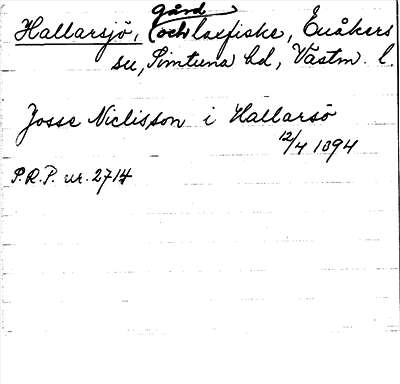 Hallarsjö, gård (och laxfiske, Enåkers
sn, Simtuna hd, Västm. l.
Josse Niclisson i Hallarsö
12/4 1094
P.R.P. nr. 2714